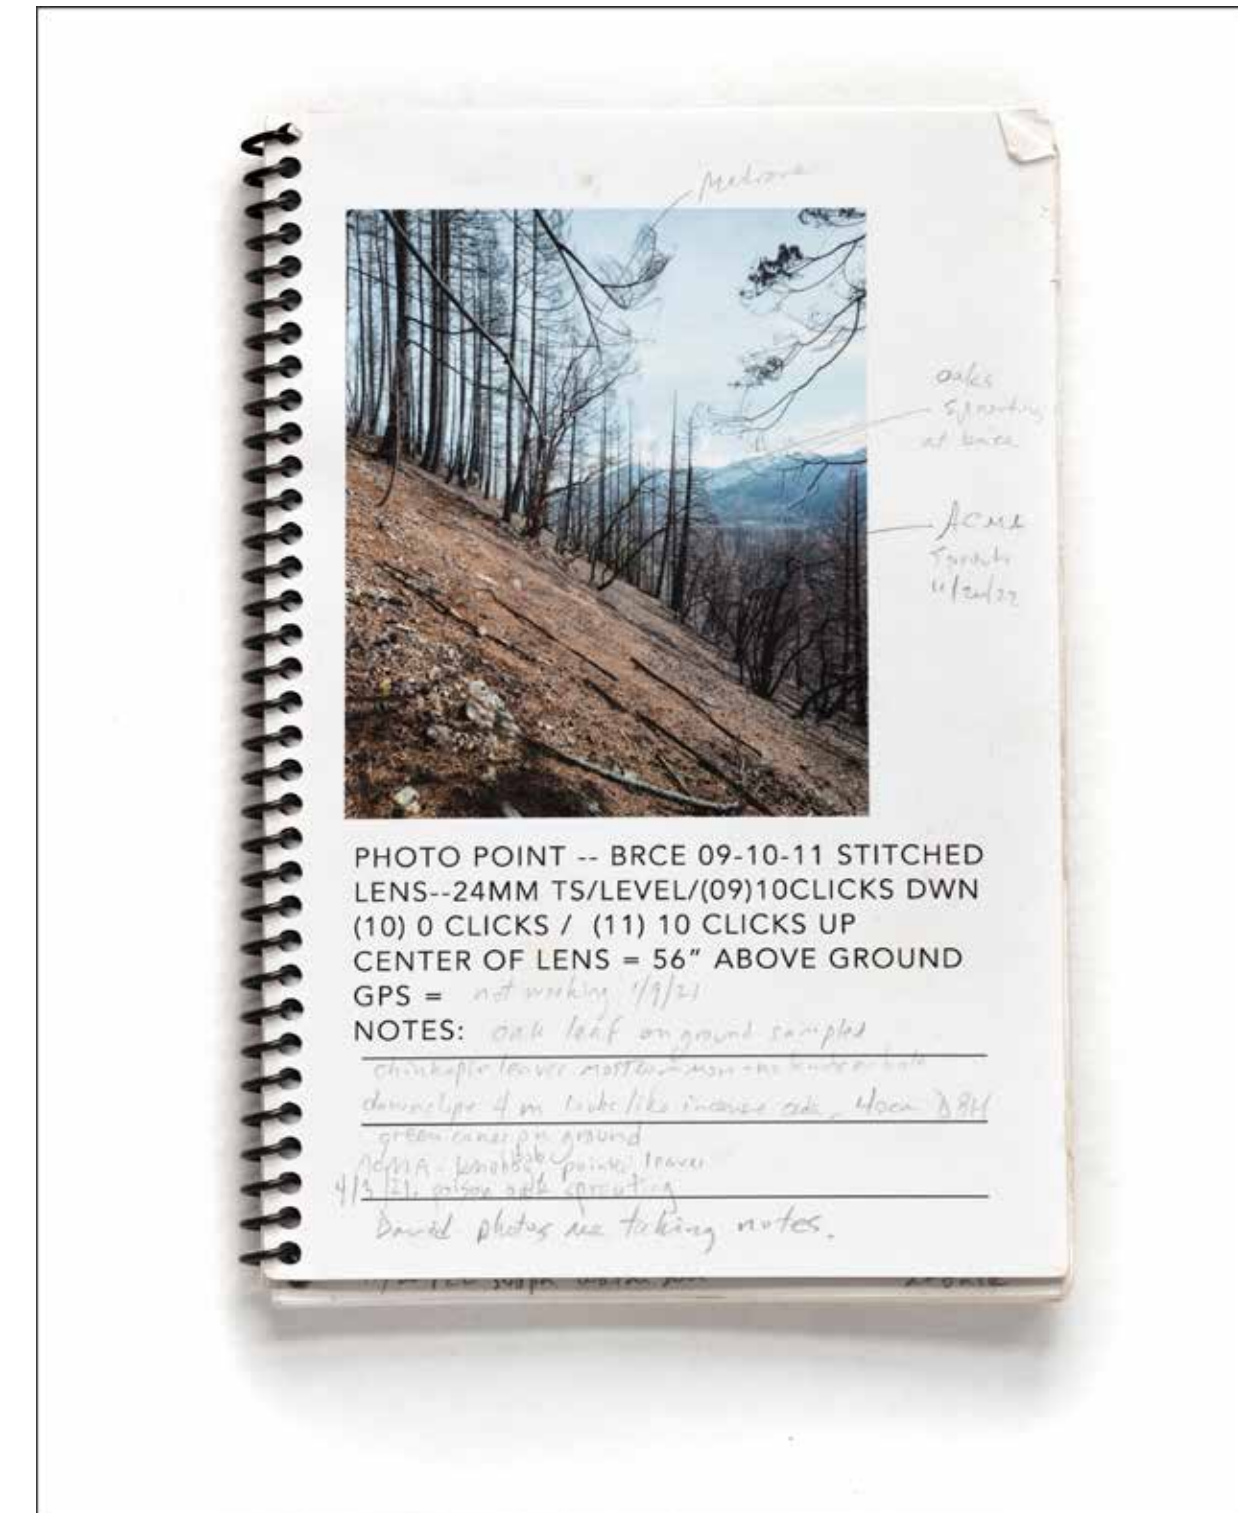 Madrone
oaks
sprouting
at base
ACMA
sprouts
11/20/22
PHOTO POINT -- BRCE 09-10-11 STITCHED
LENS--24MM TS/LEVEL/(09)10CLICKS DWN
(10) 0 CLICKS / (11) 10 CLICKS UP
CENTER OF LENS = 56" ABOVE GROUND
GPS = not working 1/9/21
NOTES: oak leaf on ground sampled
chinkapin leaves most common
downslope 4 m looks like incense 40cm DBH
green cones on ground
ACMA - knobby points leaves
4/3/21: poison oak sprouting
David photos me taking notes.